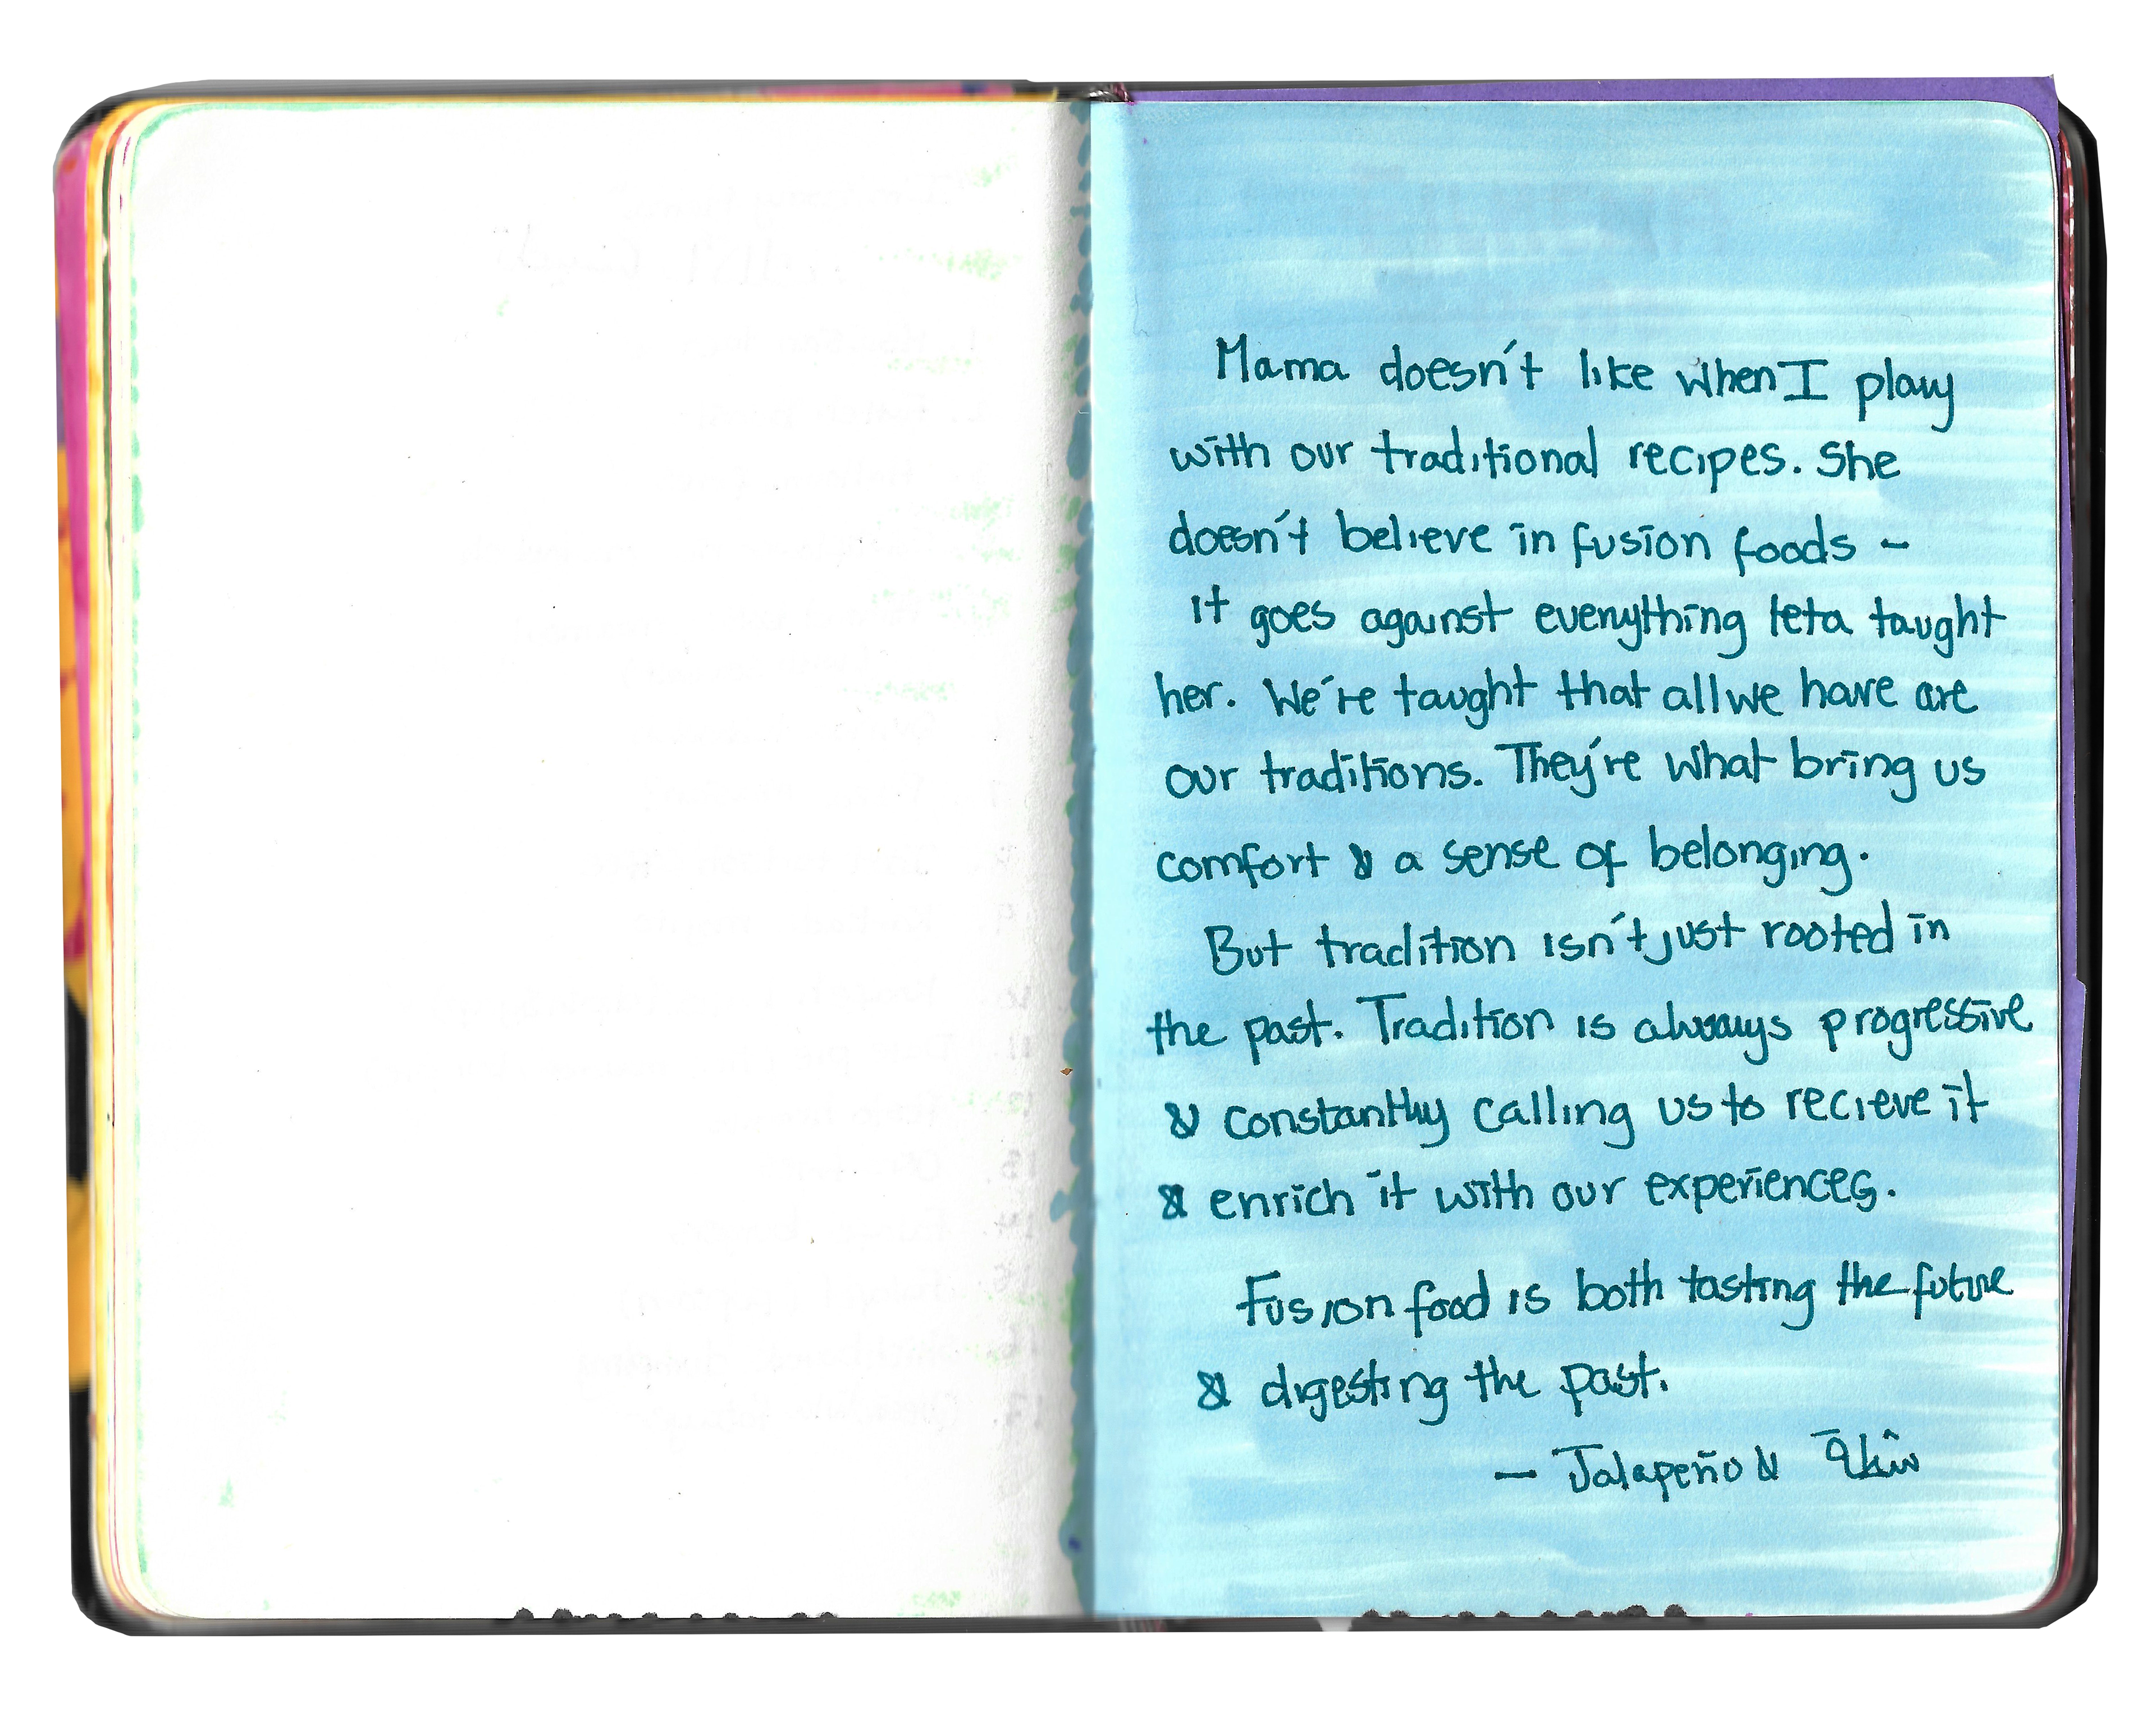 Mama doesn't like when I play
with our traditional recipes. She
doesn't believe in fusion foods -
it goes against everything teta taught
her. We're taught that all we have are
our traditions. They're what bring us
comfort & a sense of belonging.
But tradition isn't just rooted in
the past. Tradition is always progressive
& constantly calling us to recieve it
& enrich it with our experiences.
Fusion food is both tasting the future
& digesting the past.
— Jalapeño &